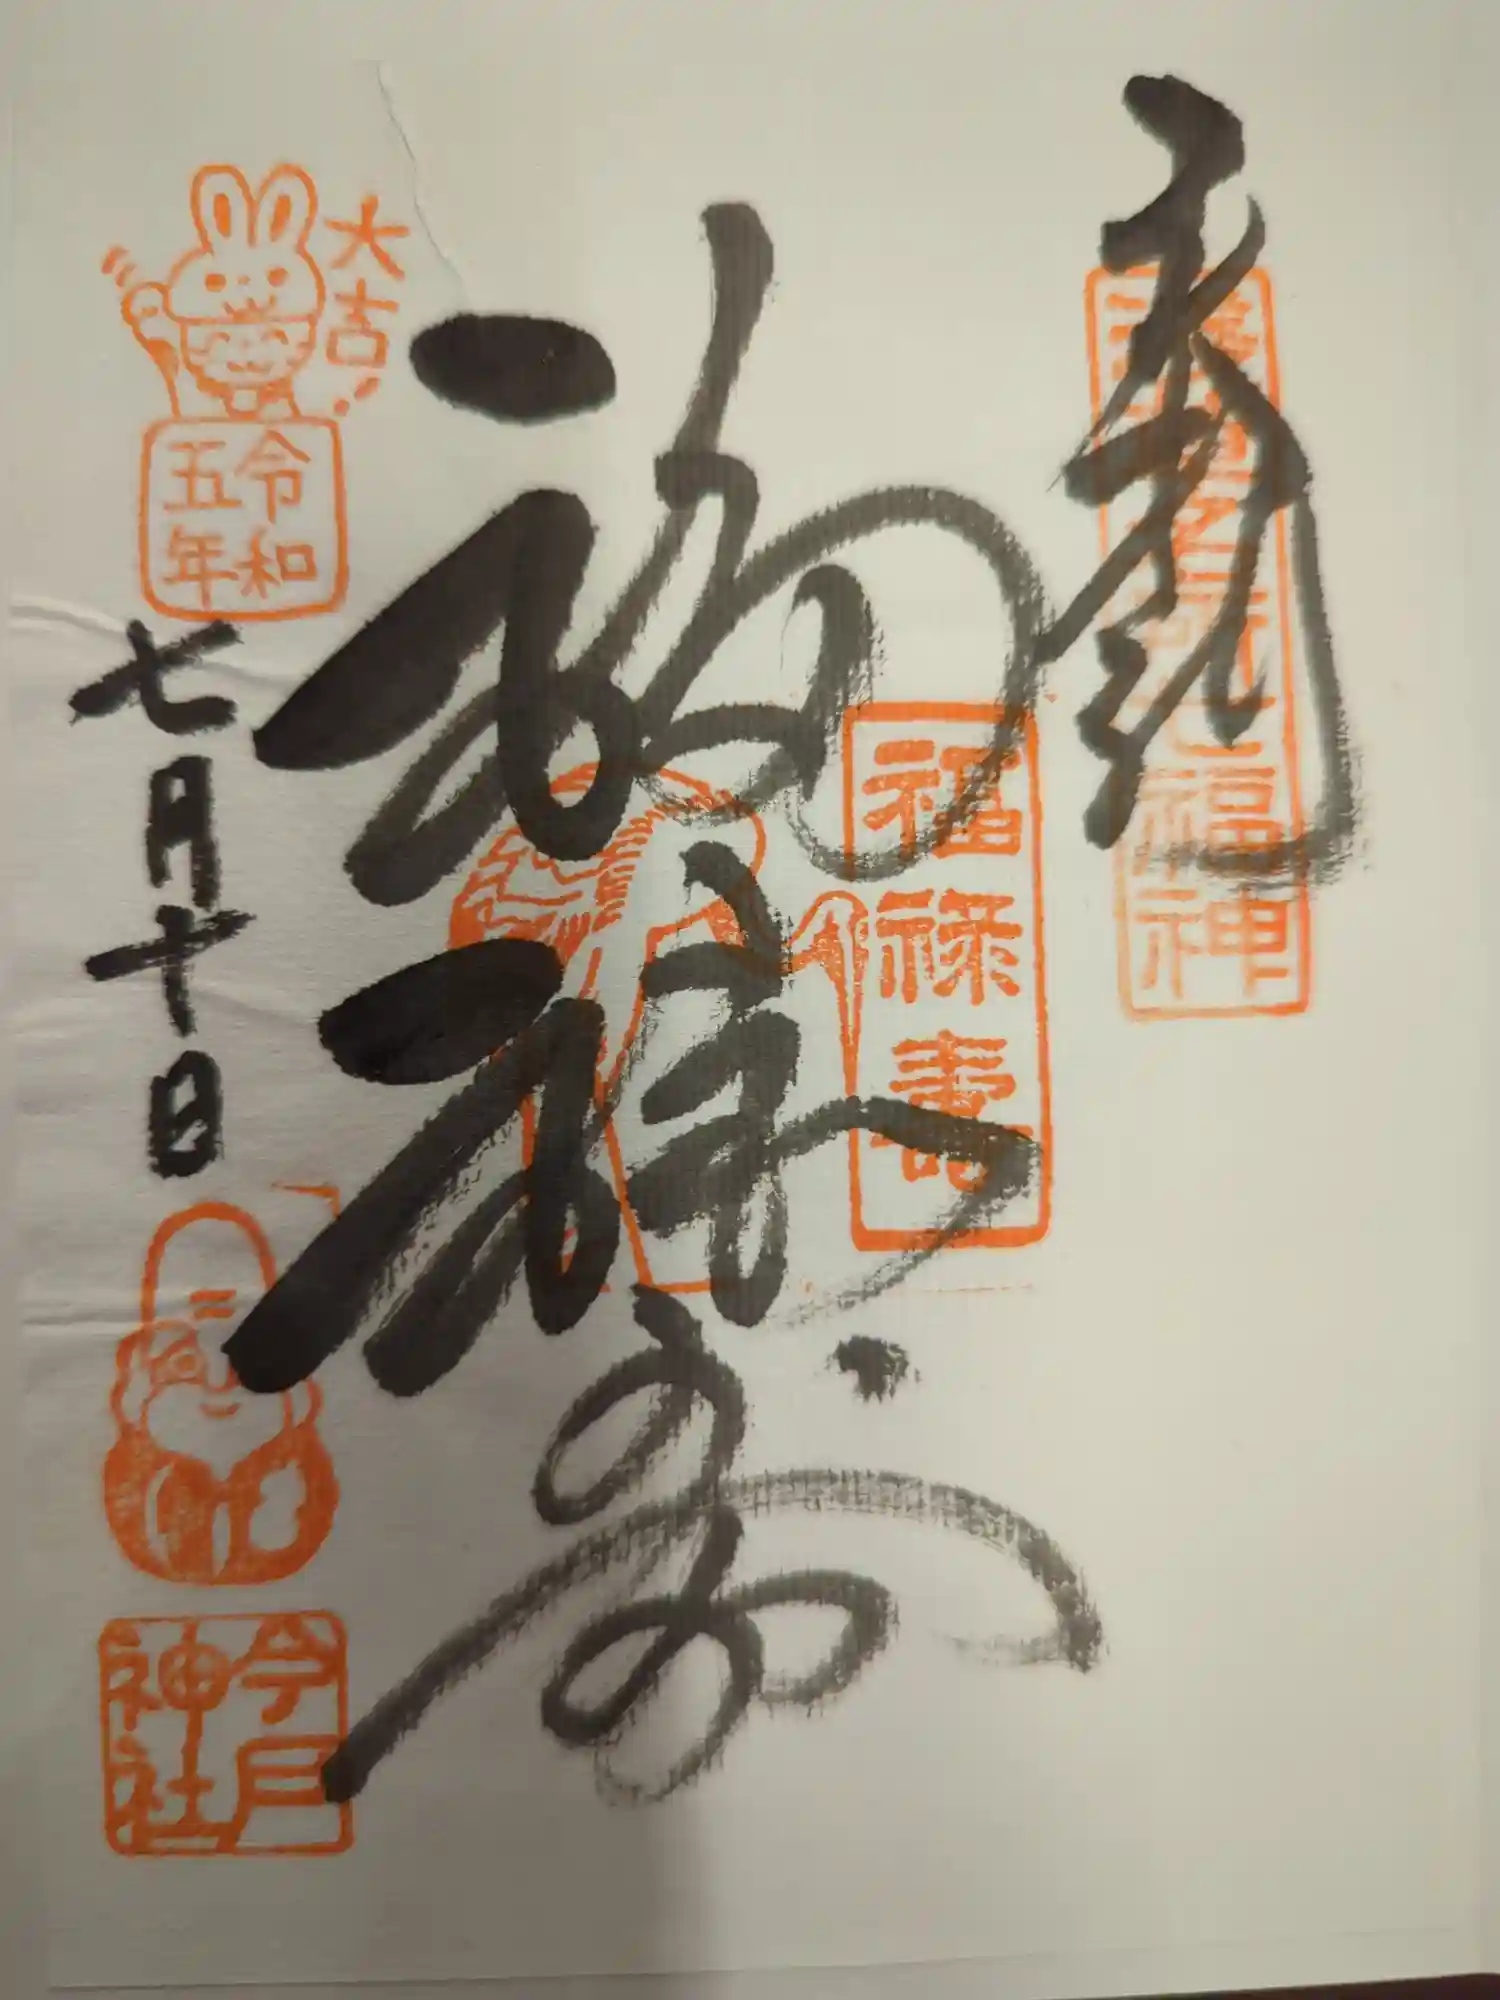 奉拝
浅草名所七福神
福禄寿
福禄寿
大吉!
令和
五年
七月十日
今戸
神社